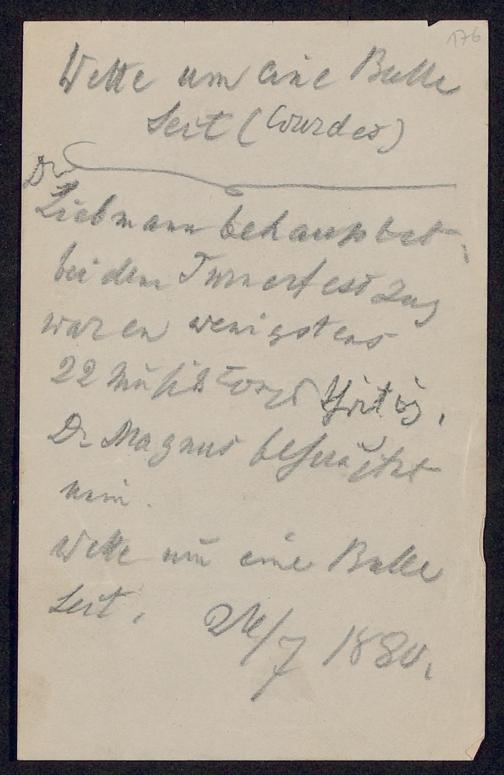 176
Wette um eine Bulle
Seit (Lourdes)
Dr
Liebmann behauptet,
bei dem Turnerfest Zug
waren wenigstens
22 Musik
Dr Magnus
nein.
Wette um eine Bulle
Seit, 26/7 1880.